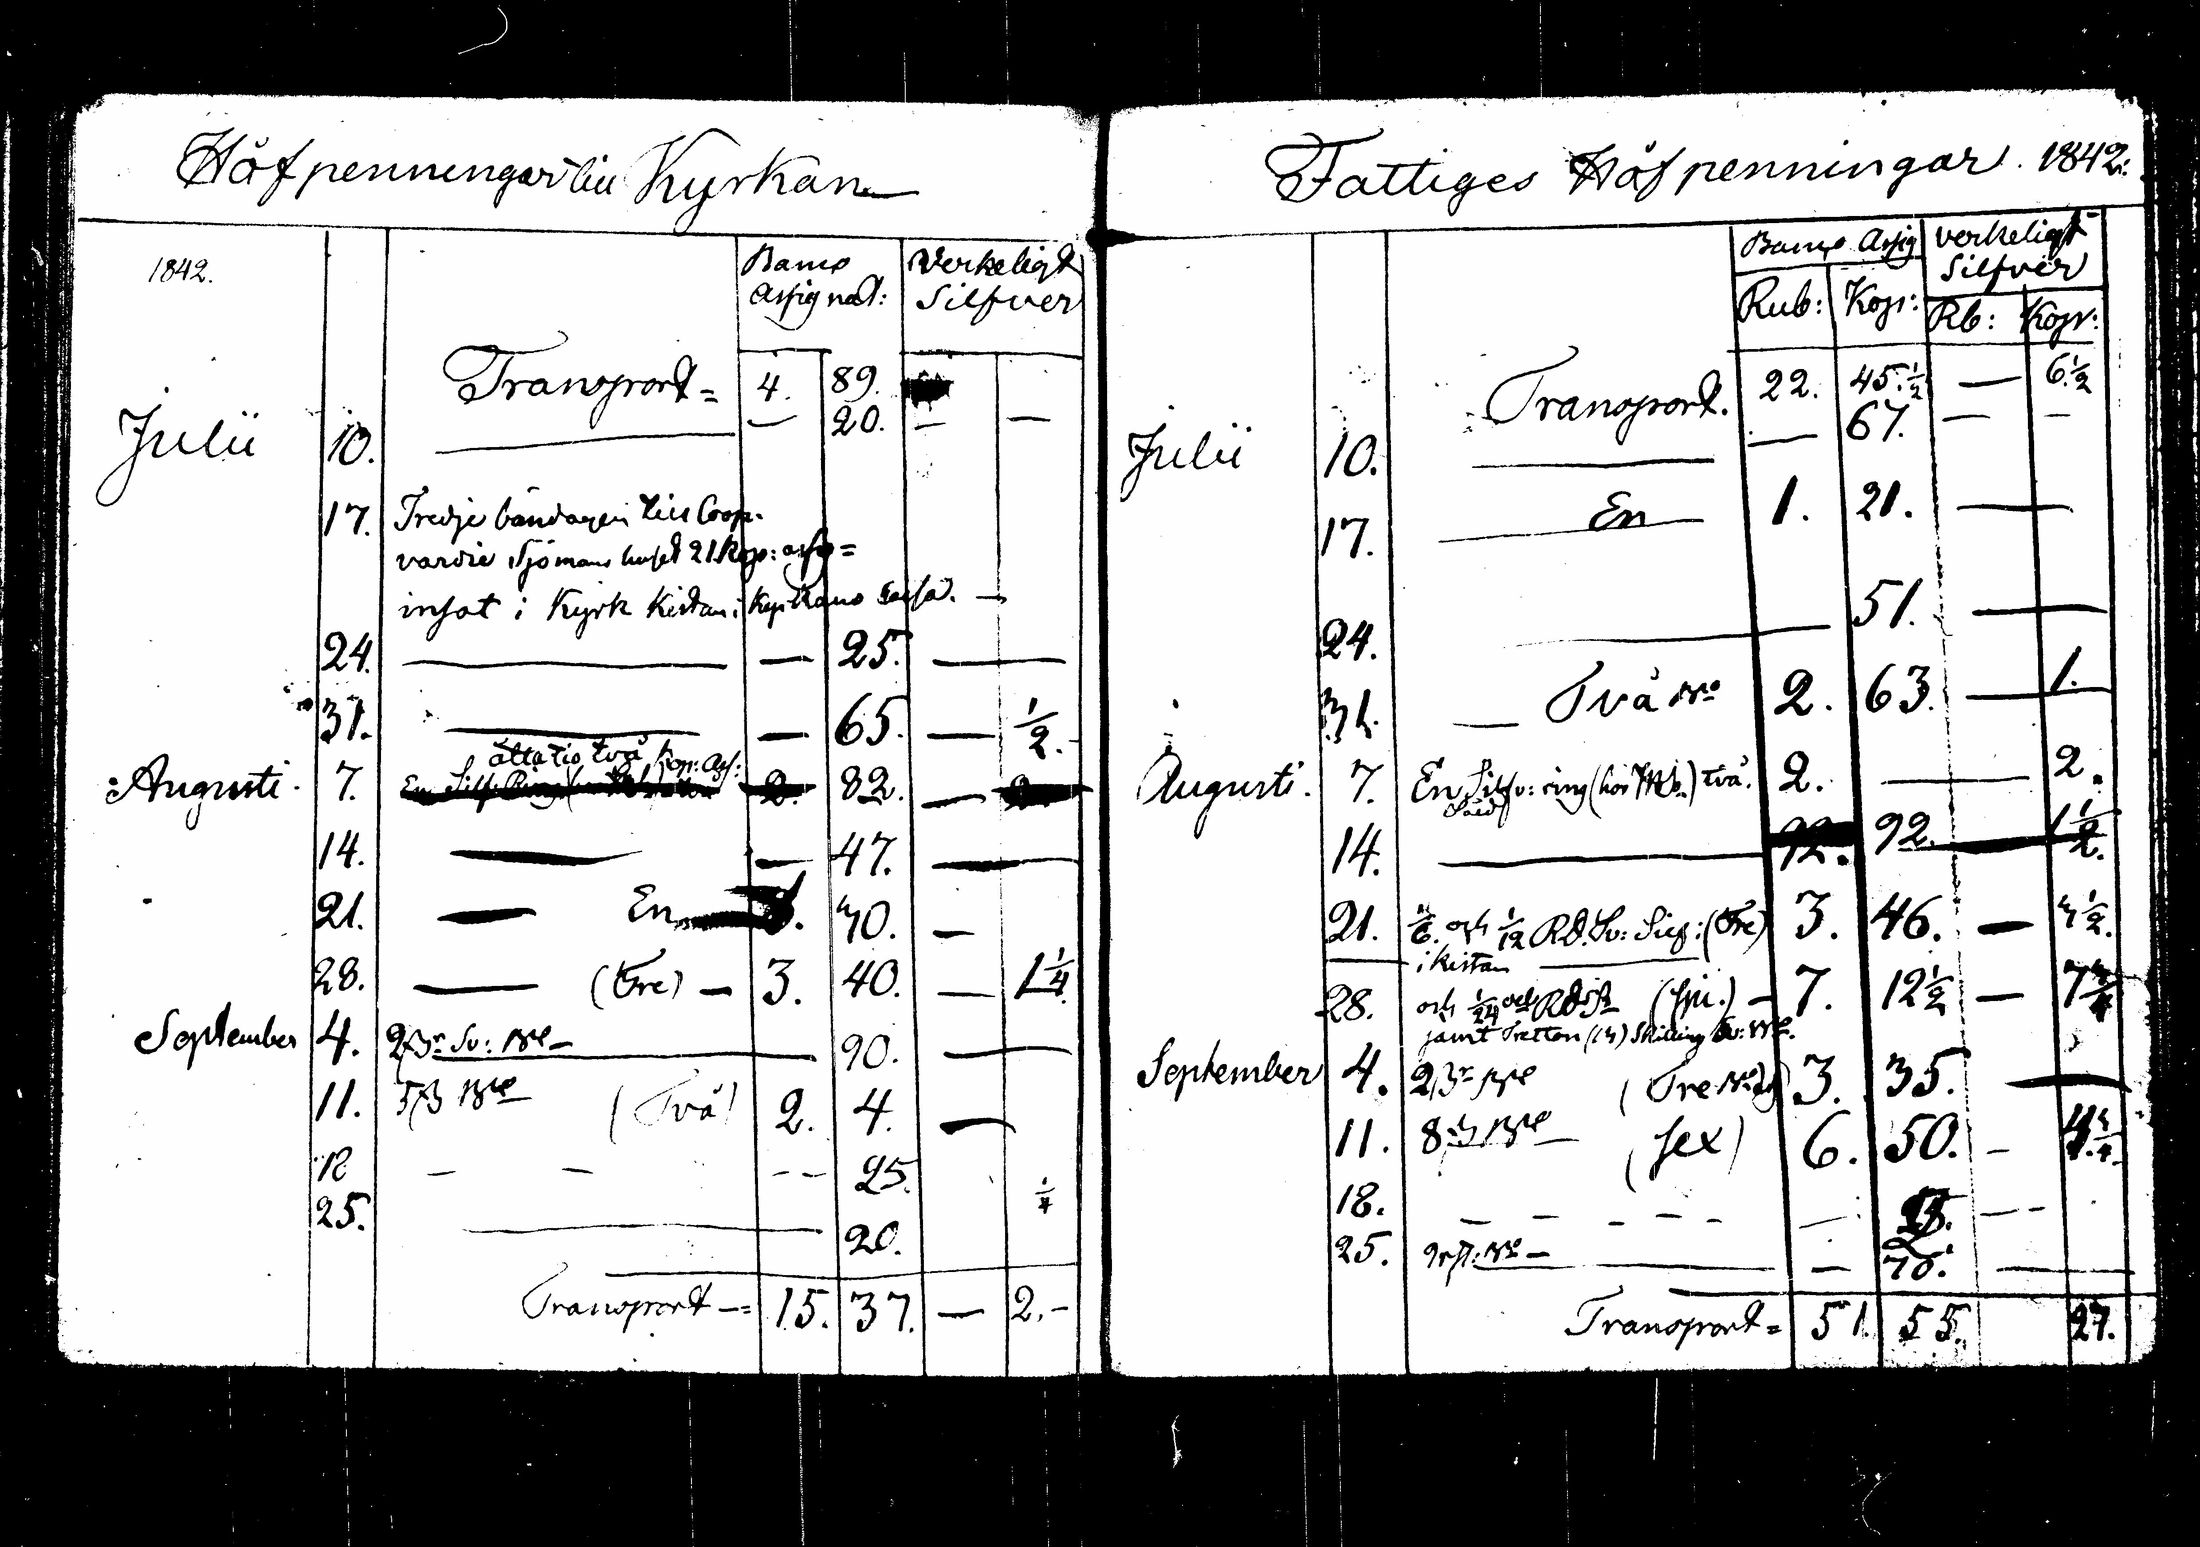 Håfpenningar till Kyrkan
1842.
Banco Assignat:
Verkeligt Silfver
Transport = 4. 89.
Julii 10. — 20. — —
17. Tredje bändagen till Coop-
vardie Sjömans huset 21 Kop: assg =
insat i Kyrk Kistan i Kyrkans —
24. — 25. —
31. — 65. — 1/2.
åttatio två Kop: Ass:
Augusti. 7. 82. —
14. — 47. —
21. — En 30. —
28. — (Tre) — 3. 40. — 1 1/4.
September 4. — 90. —
11. (Två) 2. 4. —
18 — — -- 25. 1/4
25. — 20.
Transport = 15. 37. — 2. -
Fattiges Håfpenningar. 1842.
Banco Assig
Verkeligt Silfver
Rub: Kop: Rb: Kop:
Transport. 22. 45. 1/2 — 6. 1/2
Julii 10. — 67. — —
17. En 1. 21. —
24. — 51. —
31. — Två 2. 63. — 1.
Augusti. 7. En Silfv: ring (hos) två. 2. — 2.
14. — 92. 92. — 1 1/2.
21. och 1/12 RD. Sv: (Tre) 3. 46. — 3 1/2.
i kistan
28. och 1/24 (sju.) — 7. 12 1/2 — 7 3/4
jämt Tretton (13) Skilling
September 4. (Tre 3. 35. —
11. (sex) 6. 50. - 4 3/4.
18. - - - - -
25. — — 70. —
Transport = 51. 55. 27.